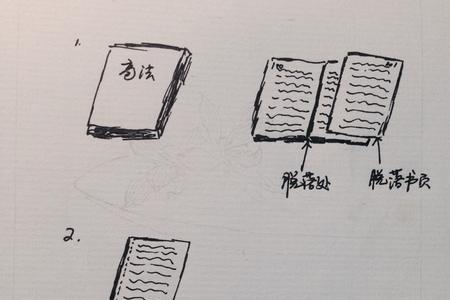 1.
高法
脱落处
脱落书页
2.